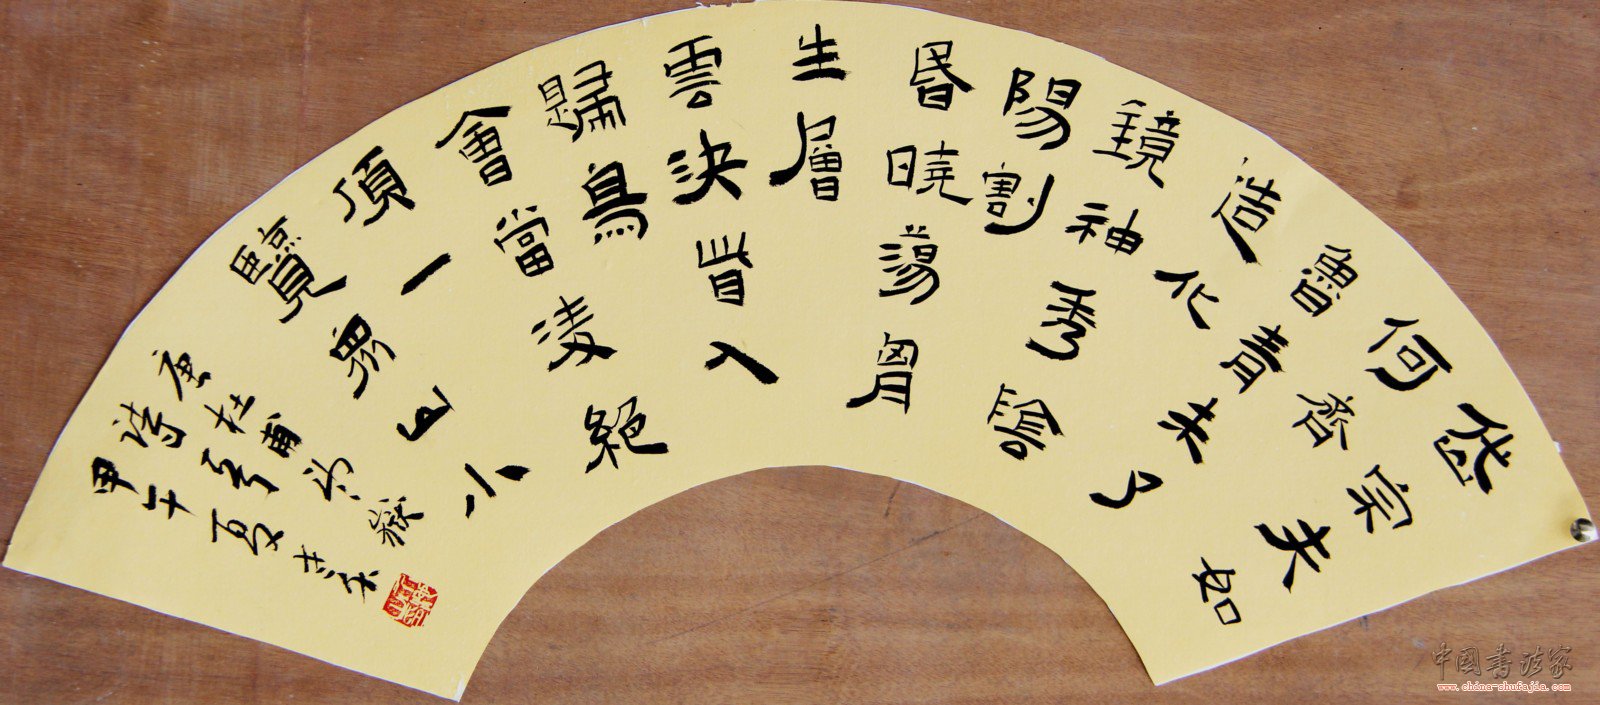 岱宗夫如
何齊
魯青未了
造化
鏡神秀陰
陽割
昬曉蕩胷
生層
雲決眥入
歸鳥
會當淩絕
頂一
覽眾山小
唐杜甫望嶽
詩
甲午夏
中国书法家
www.china-shufajia.com